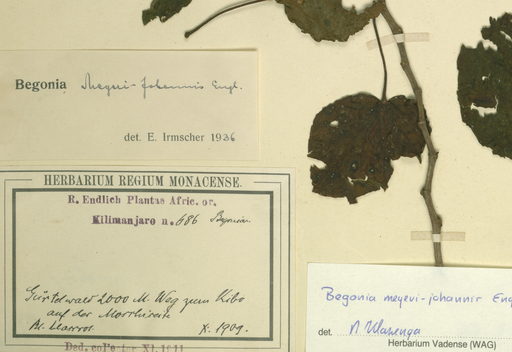 Begonia Meyeri-Johannis Engl.
det. E. Irmscher 1936
HERBARIUM REGIUM MONACENSE.
R. Endlich Plantae Afric. or.
Kilimanjaro n. 686
Gürtelwald 2000 M. Weg zum Kibo
auf der
X. 1909.
Begonia meyeri-johannis Eng
det.
Herbarium Vadense (WAG)